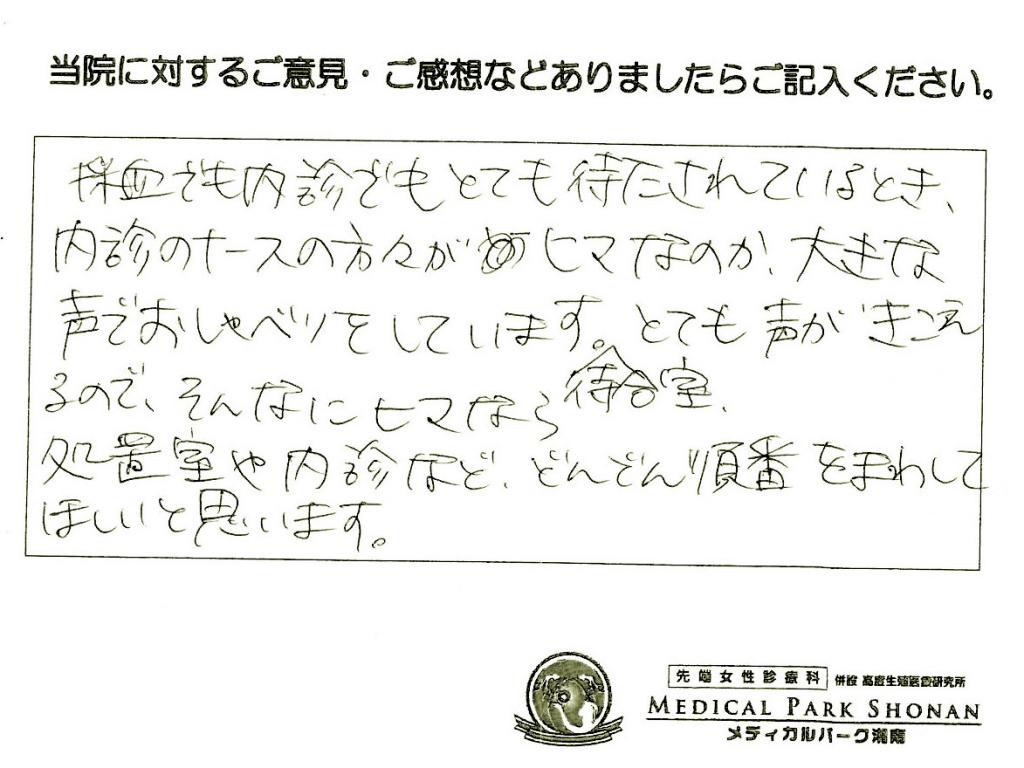 当院に対するご意見・ご感想などありましたらご記入ください。
採血でも内診でもとても待たされているとき、
内診のナースの方々が ヒマなのか、大きな
声でおしゃべりをしています。とても声がきこえ
るので、そんなにヒマなら待合室、
処置室や内診など、どんどん順番をまわして
ほしいと思います。
先端女性診療科 併設 高度生殖医療研究所
MEDICAL PARK SHONAN
メディカルパーク湘南